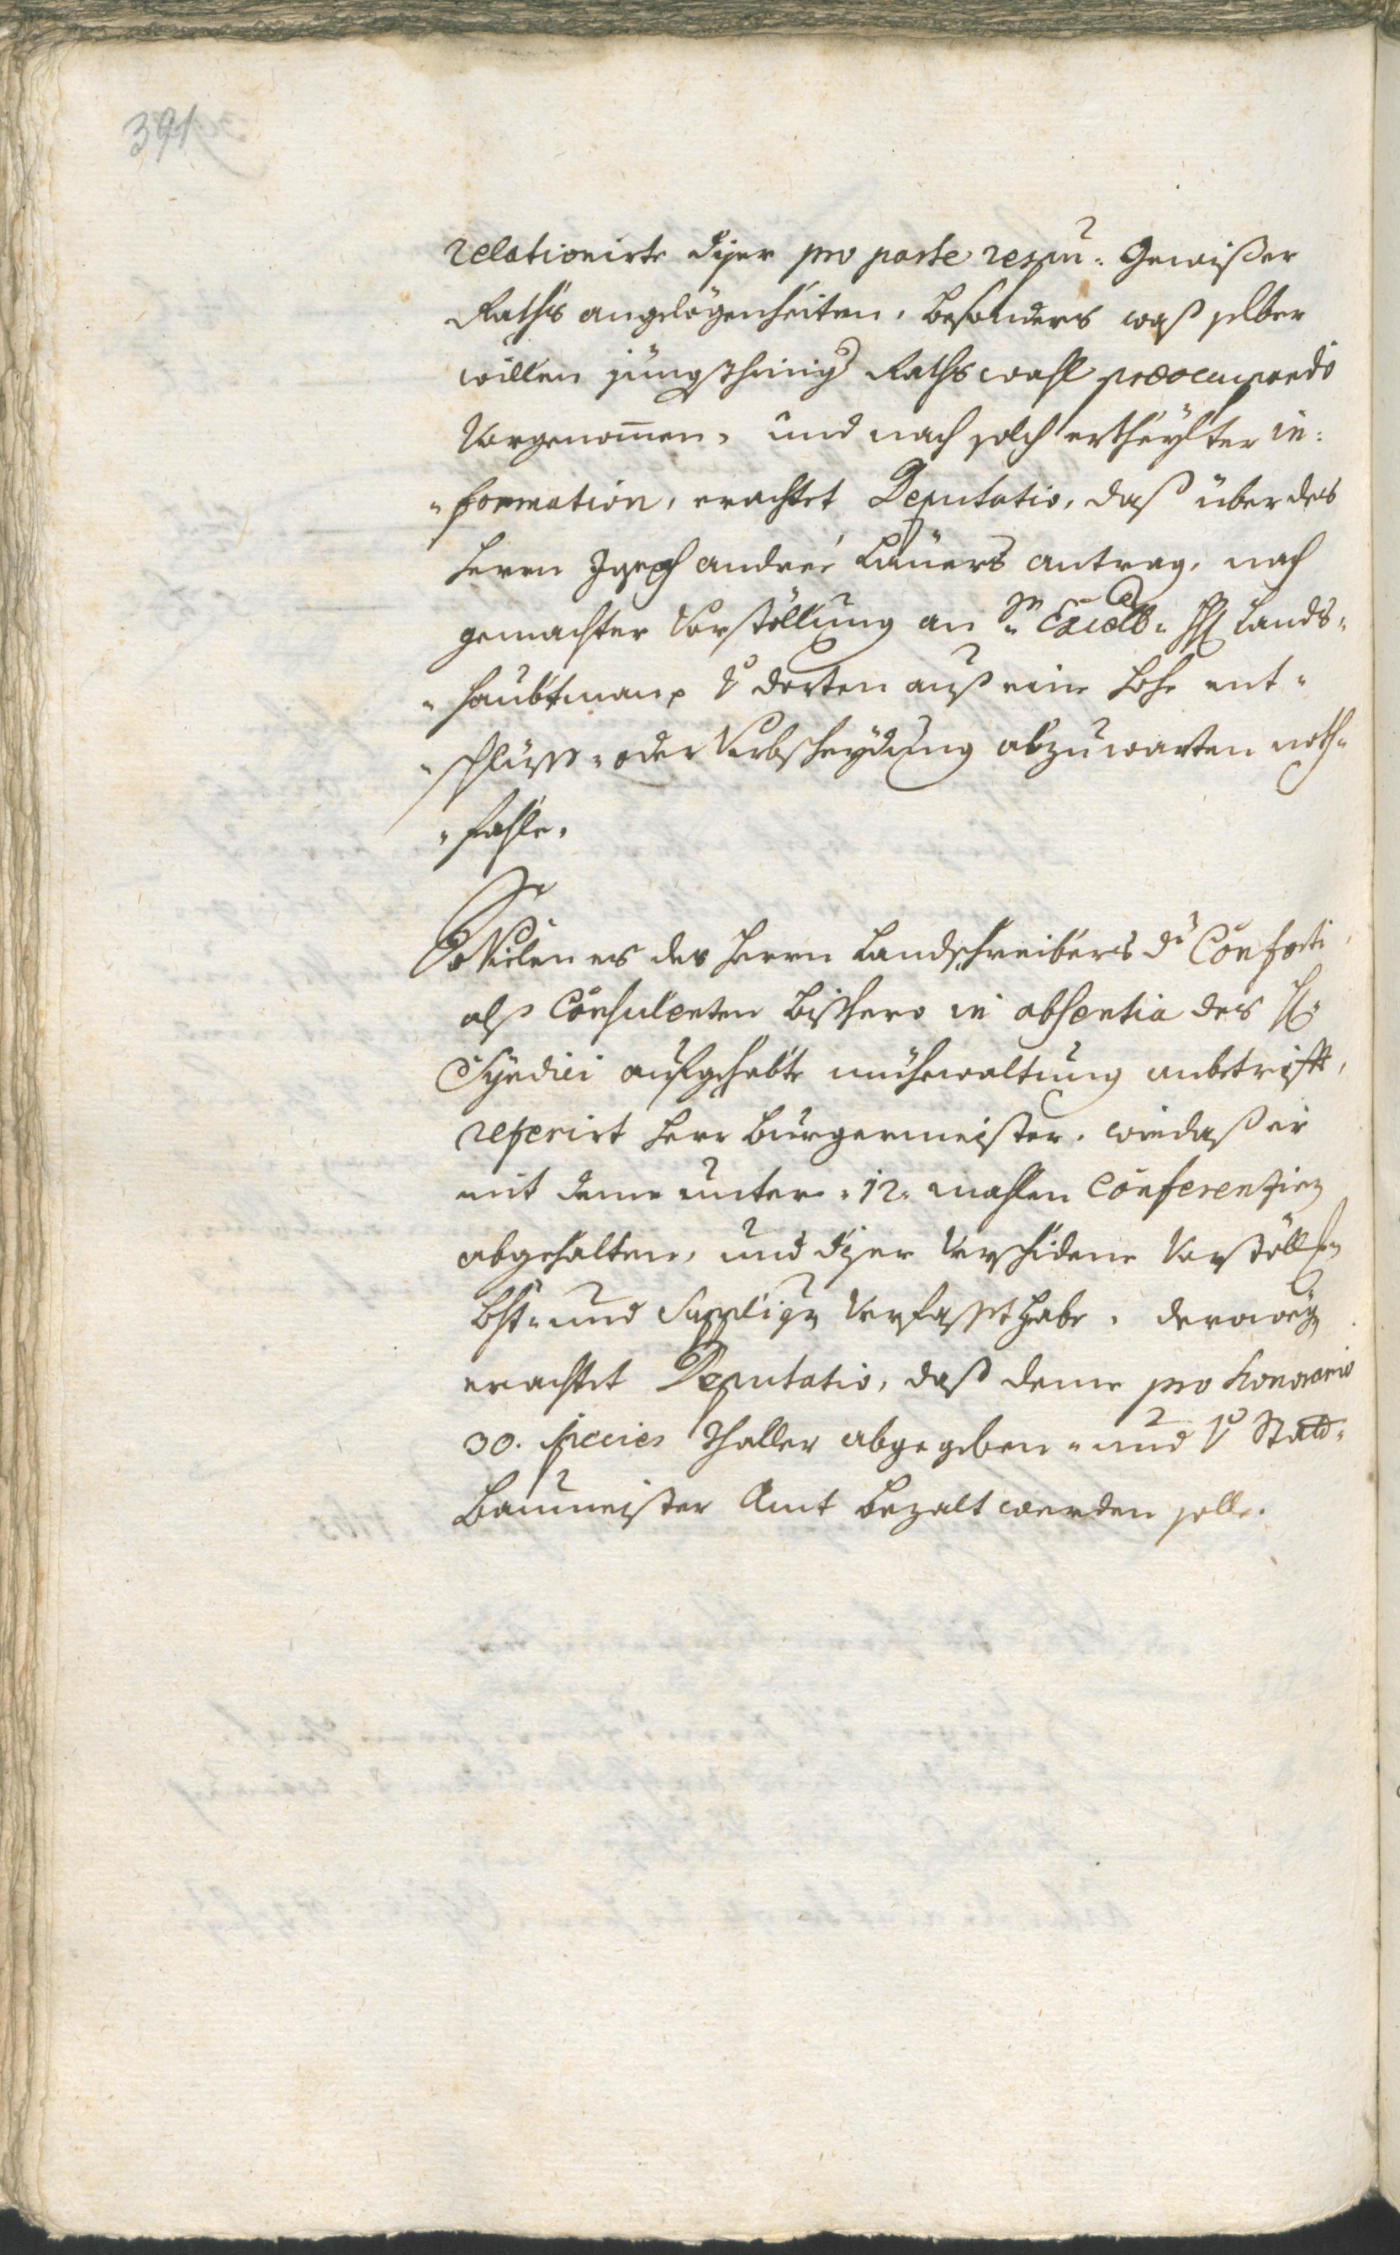 391
relationirte diser pro parte respu: Gewißer
Raths angelögenheiten, besonders waß selber
willen jüngsthinig Rathswahl præocupando
Vorgenommen, und nach solch ertheÿlter in:
"formation, erachtet Deputatio, daß über des
Herrn Joseph andreé Laüers antrag, nach
gemachter Vorstöllung an Sr Excell: H Lands"
"haubtman, dorten auß eine Hohe ent"
"schluß= oder Verbscheÿdung abzuwarten noth"
"fahle.
So Vielen es des Herrn Landschreibers di Conforti
alß Consulenten bishero in absentia des H:
Syndici aufgehabte mühewaltung anbetrifft,
referirt Herr Burgermeister, wie daß er
mit deme unter "12" mahlen Conferentien
abgehalten, und diser Verschidene Vorstöllen
und Suppliquen Verfasset habe, derowegen
erachtet Deputatio, daß deme pro honorario
30. species thaller abgegeben" und Statt"
Baumeister Amt bezalt werden solle.